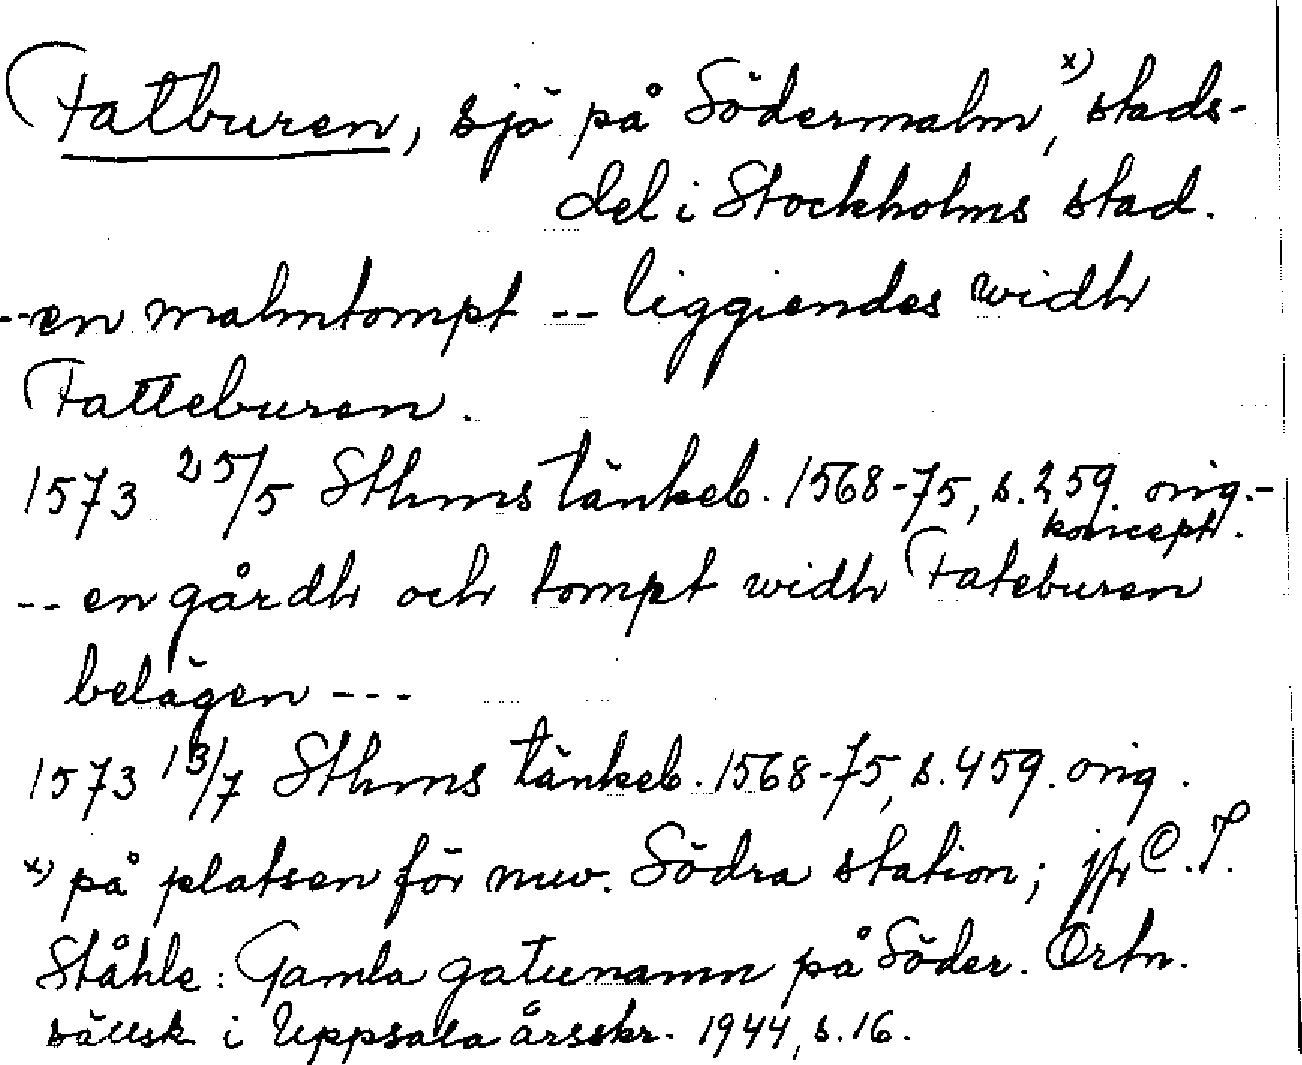 Fatburen, sjö på Södermalm,ˣ⁾ stads-
del i Stockholms stad.
--en malmtompt -- liggiendes widh
Fatteburen.
1573 25/5 Sthms tänkeb. 1568-75, s. 259. orig.-
koncept.
-- en gårdh och tompt widh Fateburen
belägen ---
1573 13/7 Sthms tänkeb. 1568-75, s. 459. orig.
x) på platsen för nuv. Södra station; jfr C. I.
Ståhle: Gamla gatunamn på Söder. Ortn.
sällsk i Uppsala årsskr. 1944, s. 16.